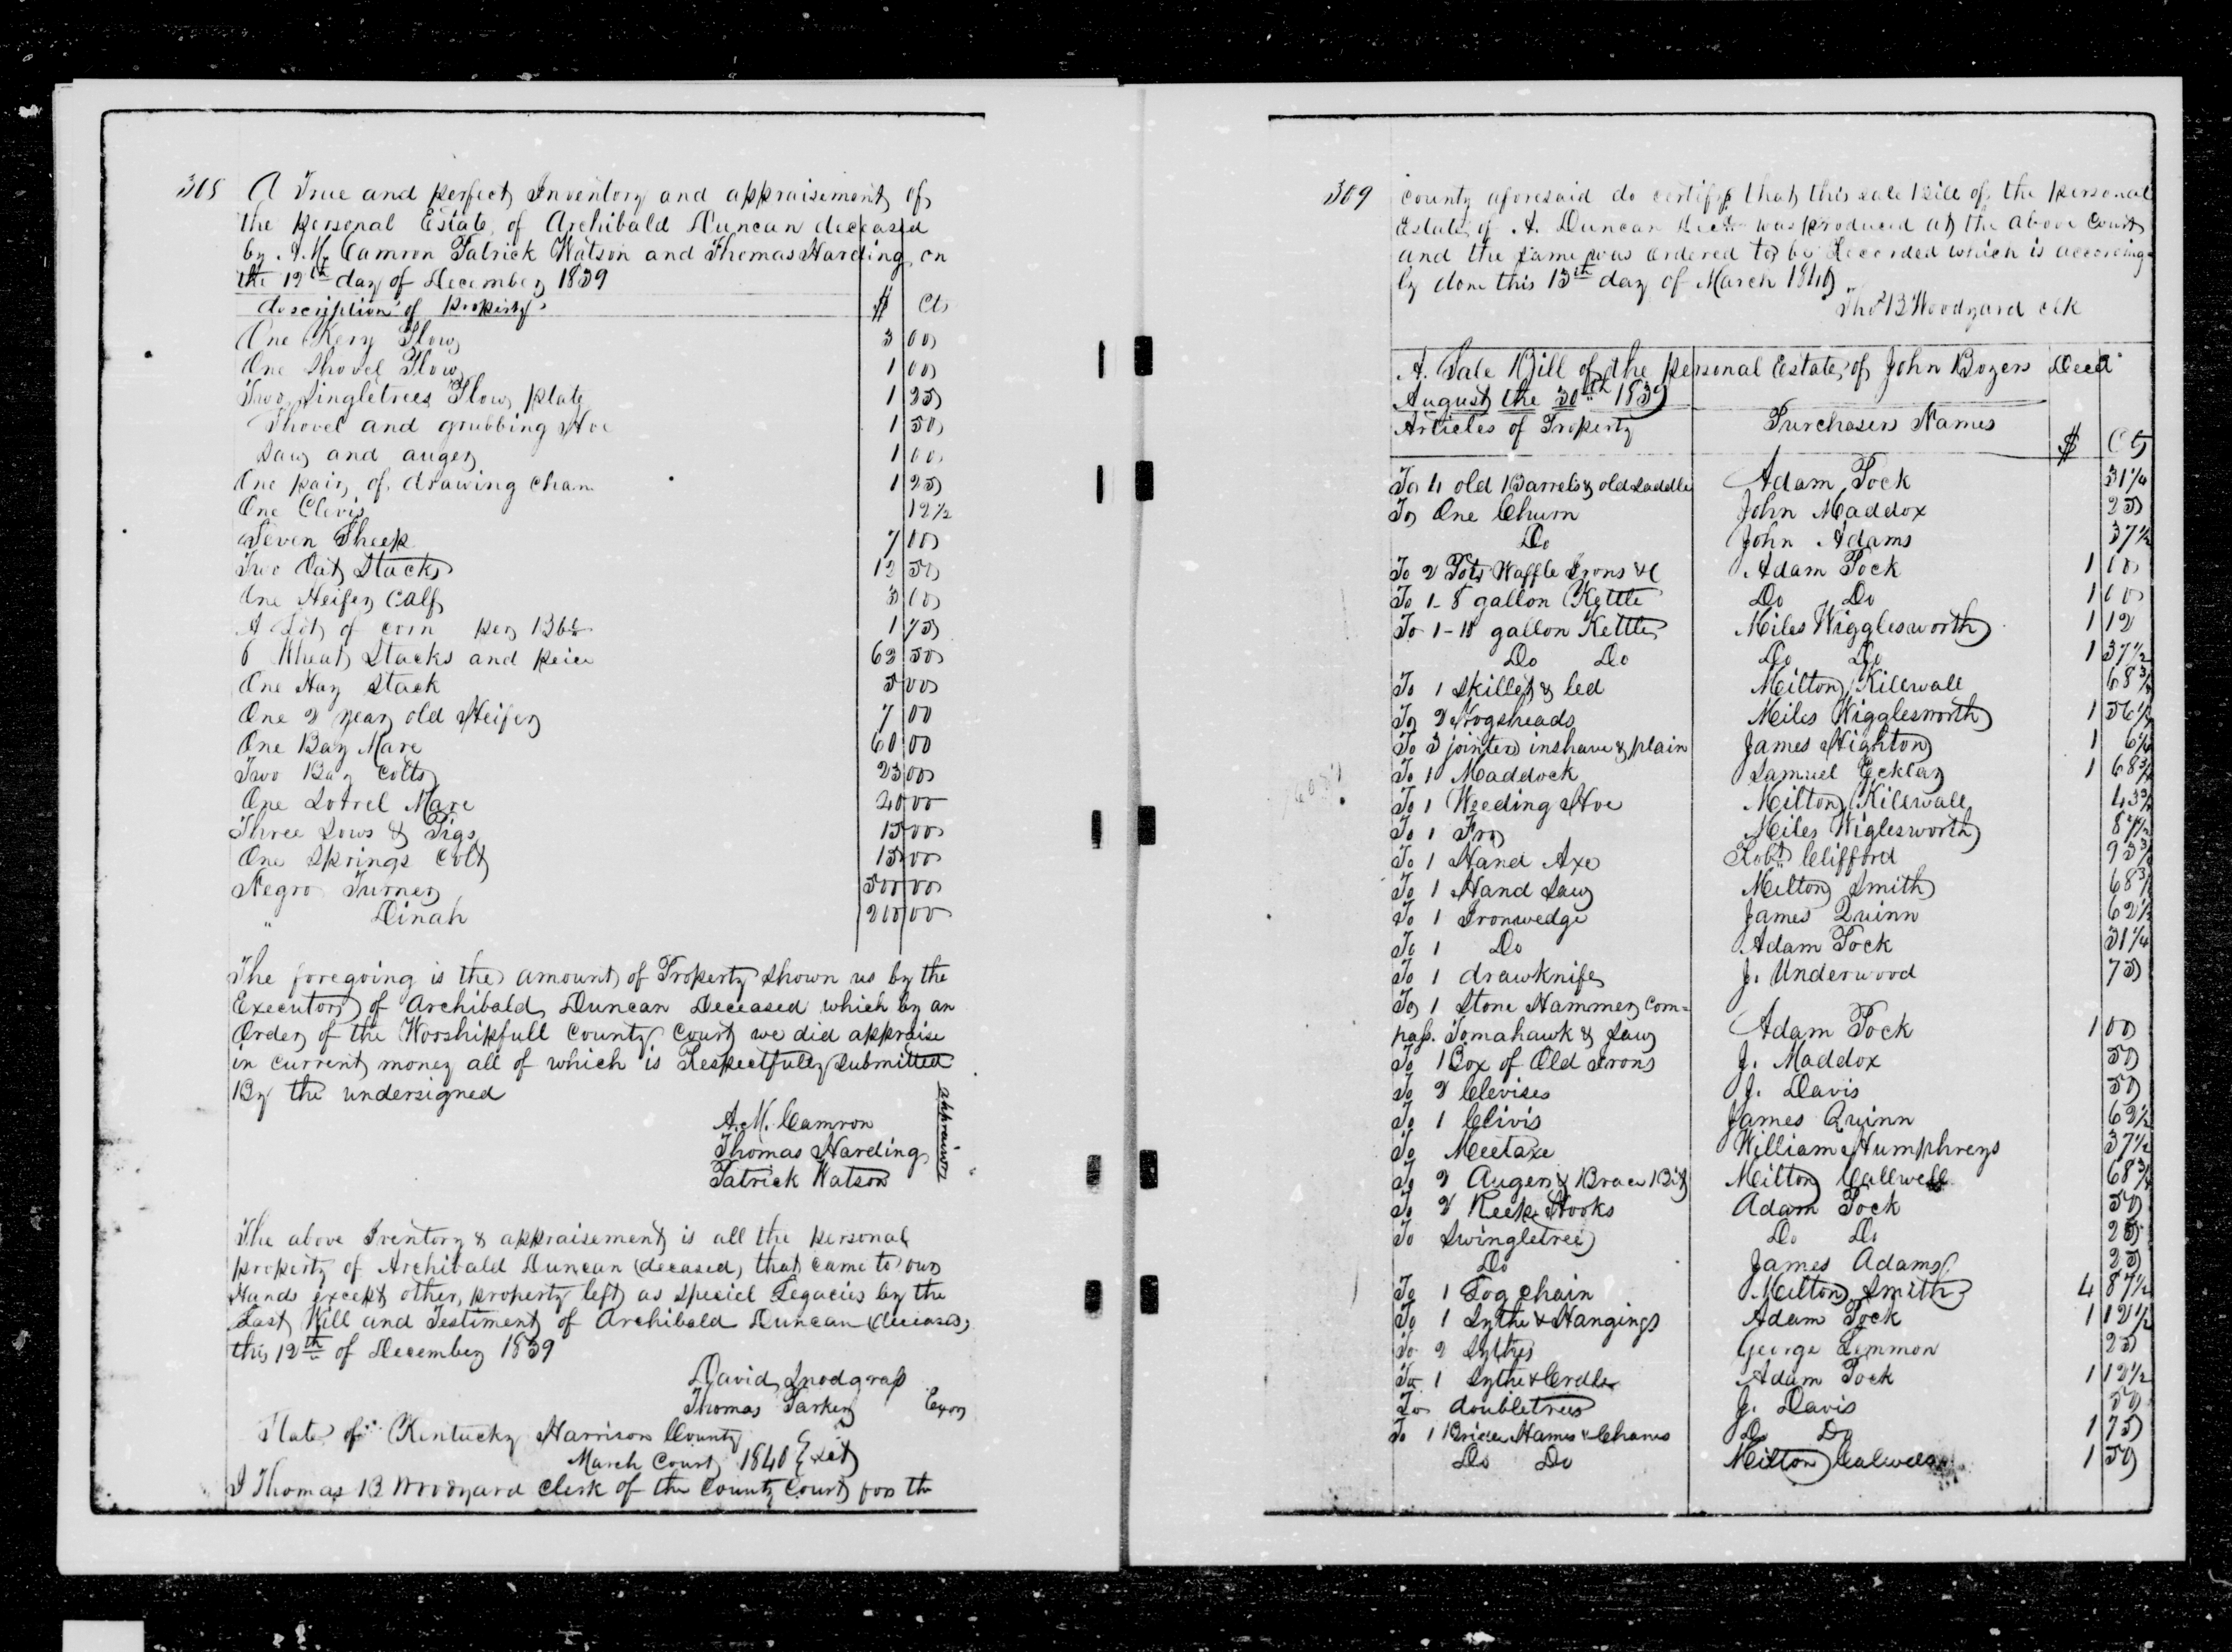 308 A True and perfect Inventory and appraisement of
the personal Estate of Archibald Duncan deceased
by A. M. Camron Patrick Watson and Thomas Harding on
the 12th day of December 1839
description of property $ Cts
One Kery Plow 3 00
One Shovel Plow 1 00
Two Singletrees Plow plate 1 25
Shovel and grubbing Hoe 1 50
Saw and auger 1 00
One pair of drawing chan 1 25
One Clevis 12 1/2
Seven Sheep 7 00
Two Oat Stacks 12 50
One Heifer Calf 3 00
A Lot of corn per Bbl 1 75
6 Wheat Stacks and peice 62 50
One Hay Stack 5 00
One 2 year old Heifer 7 00
One Bay Mare 60 00
Two Bay Colts 25 00
One Sorrel Mare 40 00
Three Sows & Pigs 15 00
One Springs Colt 15 00
Negro Turner 500 00
" Dinah 200 00
The foregoing is the amount of Property shown us by the
Executors of Archibald Duncan Deceased which by an
Order of the Worshipfull County Court we did appraise
in current money all of which is Respectfully submitted
By the undersigned
A. M. Camron
Thomas Harding
Patrick Watson
appraisors
The above Iventory & appraisement is all the personal
property of Archibald Duncan (deceased) that came to our
Hands except other property left as speciel Legacies by the
Last Will and Testiment of Archibald Duncan (deceased)
this 12th of December 1839
David Snodgrass
Thomas Parker Exors
State of Kentucky Harrison County
March Court 1840 } Sct
I Thomas B Woodyard Clerk of the County Court for the
309 county aforesaid do certify that this sale bill of the personal
Estate of A. Duncan Decd was produced at the above Court
and the same was ordered to be Recorded which is according
ly done this 13th day of March 1840
Tho B Woodyard clk
A Sale Bill of the personal Estate of John Bozers Decd
August the 30th 1839
Articles of Property Purchasers Names
$ Cts
To 4 old Barrels & old Saddle Adam Pock 31 1/4
To One Churn John Maddox 25
Do John Adams 37 1/2
To 2 Pots Waffle Irons &c Adam Pock 1 00
To 1-8 gallon Kettle Do Do 1 00
To 1-18 gallon Kettle Miles Wigglesworth 1 12
Do Do Do Do 1 37 1/2
To 1 Skillet & led Milton Killwall 68 3/4
To 2 Hogsheads Miles Wigglesworth 1 56 1/4
To 3 jointers inshave & plain James Highton 1 6 1/4
To 1 Maddock Samuel Ecklar 1 68 3/4
To 1 Weeding Hoe Milton Killwall 43 3/4
To 1 Fro Miles Wiglesworth 87 1/2
To 1 Hand Axe Robt Clifford 93 3/4
To 1 Hand Saw Milton Smith 68 3/4
To 1 Ironwedge James Quinn 62 1/2
To 1 Do Adam Pock 31 1/4
To 1 drawknife J. Underwood 75
To 1 Stone Hammer Com=
pass. Tomahawk & Saw Adam Pock 1 00
To 1 Box of Old Irons J. Maddox 50
To 2 Clevises J. Davis 50
To 1 Clivis James Quinn 62 1/2
To Meetaxe William Humphreys 37 1/2
To 2 Augers & Brace Bit Milton Callwell 68 3/4
To 2 Reep Hooks Adam Pock 50
To Swingletree Do Do 25
Do James Adams 25
To 1 Log chain Milton Smith 4 87 1/2
To 1 Sythe & Hangings Adam Pock 1 12 1/2
To 2 Sythes George Lemmon 25
To 1 Sythe & Credle Adam Pock 1 12 1/2
To doubletrees J. Davis 50
To 1 Hames & Chanes Do Do 1 75
Do Do Milton Calwell 1 50